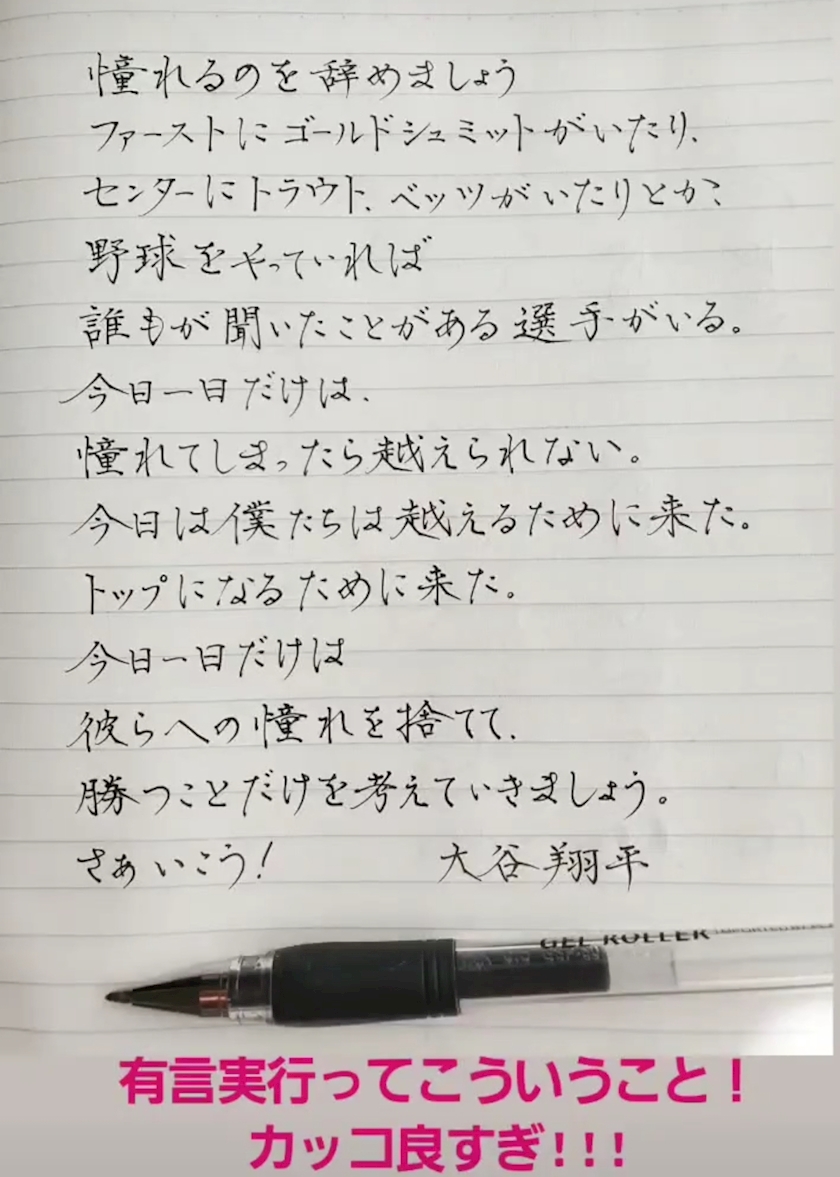 憧れるのを辞めましょう
ファーストにゴールドシュミットがいたり、
センターにトラウト、ベッツがいたりとか、
野球をやっていれば
誰もが聞いたことがある選手がいる。
今日一日だけは、
憧れてしまったら越えられない。
今日は僕たちは越えるために来た。
トップになるために来た。
今日一日だけは
彼らへの憧れを捨てて、
勝つことだけを考えていきましょう。
さぁいこう! 大谷翔平
GEL ROLLER
有言実行ってこういうこと!
カッコ良すぎ!!!